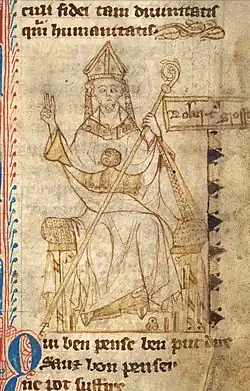 culi fidei tam divinitatis
qui humanitatis.
Robert gross
Qui ben pense ben put dire
Sanz bon penser
ne pot suffire